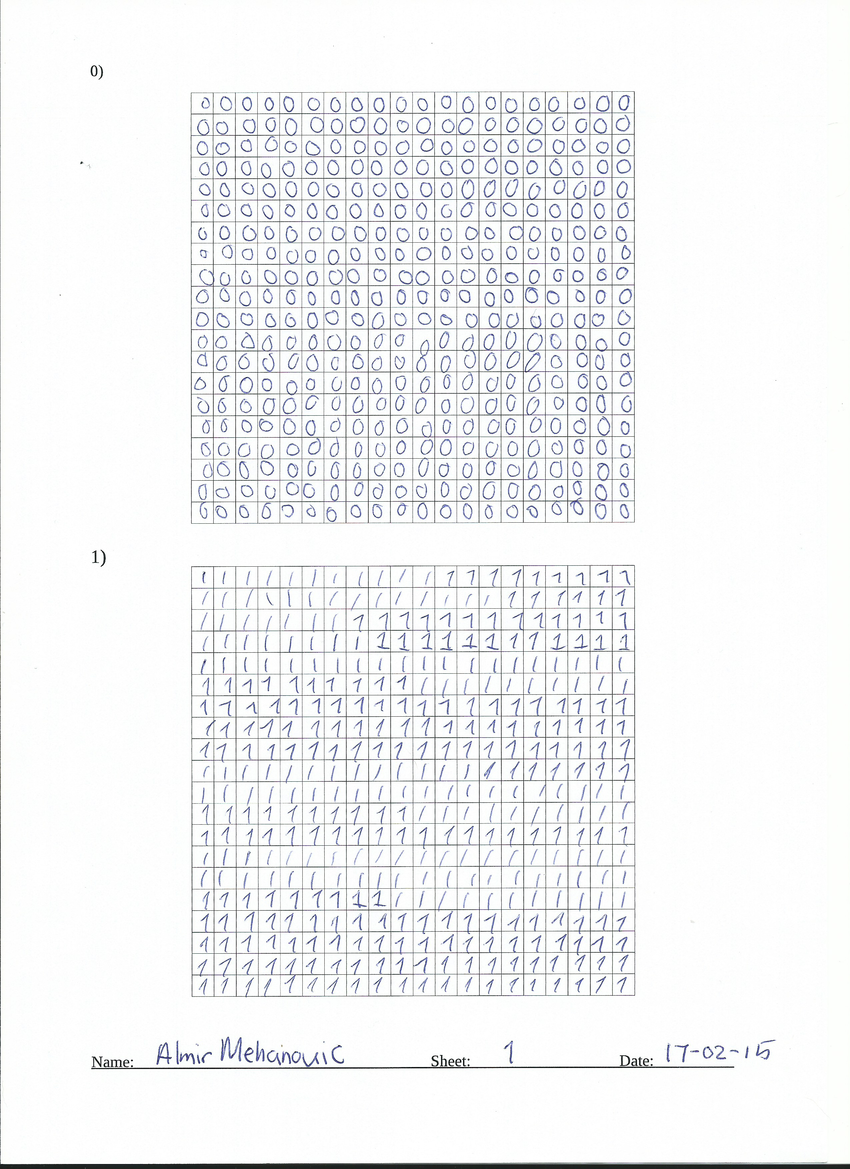 0)
0 0 0 0 0 0 0 0 0 0 0 0 0 0 0 0 0 0 0 0
0 0 0 0 0 0 0 0 0 0 0 0 0 0 0 0 0 0 0 0
0 0 0 0 0 0 0 0 0 0 0 0 0 0 0 0 0 0 0 0
0 0 0 0 0 0 0 0 0 0 0 0 0 0 0 0 0 0 0 0
0 0 0 0 0 0 0 0 0 0 0 0 0 0 0 0 0 0 0 0
0 0 0 0 0 0 0 0 0 0 0 0 0 0 0 0 0 0 0 0
0 0 0 0 0 0 0 0 0 0 0 0 0 0 0 0 0 0 0 0
0 0 0 0 0 0 0 0 0 0 0 0 0 0 0 0 0 0 0 0
0 0 0 0 0 0 0 0 0 0 0 0 0 0 0 0 0 0 0 0
0 0 0 0 0 0 0 0 0 0 0 0 0 0 0 0 0 0 0 0
0 0 0 0 0 0 0 0 0 0 0 0 0 0 0 0 0 0 0 0
0 0 0 0 0 0 0 0 0 0 0 0 0 0 0 0 0 0 0 0
0 0 0 0 0 0 0 0 0 0 0 0 0 0 0 0 0 0 0 0
0 0 0 0 0 0 0 0 0 0 0 0 0 0 0 0 0 0 0 0
0 0 0 0 0 0 0 0 0 0 0 0 0 0 0 0 0 0 0 0
0 0 0 0 0 0 0 0 0 0 0 0 0 0 0 0 0 0 0 0
0 0 0 0 0 0 0 0 0 0 0 0 0 0 0 0 0 0 0 0
0 0 0 0 0 0 0 0 0 0 0 0 0 0 0 0 0 0 0 0
0 0 0 0 0 0 0 0 0 0 0 0 0 0 0 0 0 0 0 0
0 0 0 0 0 0 0 0 0 0 0 0 0 0 0 0 0 0 0 0
1)
1 1 1 1 1 1 1 1 1 1 1 1 1 1 1 1 1 1 1 1
1 1 1 1 1 1 1 1 1 1 1 1 1 1 1 1 1 1 1 1
1 1 1 1 1 1 1 1 1 1 1 1 1 1 1 1 1 1 1 1
1 1 1 1 1 1 1 1 1 1 1 1 1 1 1 1 1 1 1 1
1 1 1 1 1 1 1 1 1 1 1 1 1 1 1 1 1 1 1 1
1 1 1 1 1 1 1 1 1 1 1 1 1 1 1 1 1 1 1 1
1 1 1 1 1 1 1 1 1 1 1 1 1 1 1 1 1 1 1 1
1 1 1 1 1 1 1 1 1 1 1 1 1 1 1 1 1 1 1 1
1 1 1 1 1 1 1 1 1 1 1 1 1 1 1 1 1 1 1 1
1 1 1 1 1 1 1 1 1 1 1 1 1 1 1 1 1 1 1 1
1 1 1 1 1 1 1 1 1 1 1 1 1 1 1 1 1 1 1 1
1 1 1 1 1 1 1 1 1 1 1 1 1 1 1 1 1 1 1 1
1 1 1 1 1 1 1 1 1 1 1 1 1 1 1 1 1 1 1 1
1 1 1 1 1 1 1 1 1 1 1 1 1 1 1 1 1 1 1 1
1 1 1 1 1 1 1 1 1 1 1 1 1 1 1 1 1 1 1 1
1 1 1 1 1 1 1 1 1 1 1 1 1 1 1 1 1 1 1 1
1 1 1 1 1 1 1 1 1 1 1 1 1 1 1 1 1 1 1 1
1 1 1 1 1 1 1 1 1 1 1 1 1 1 1 1 1 1 1 1
1 1 1 1 1 1 1 1 1 1 1 1 1 1 1 1 1 1 1 1
1 1 1 1 1 1 1 1 1 1 1 1 1 1 1 1 1 1 1 1
Name: Almir Mehanovic Sheet: 1 Date: 17-02-15